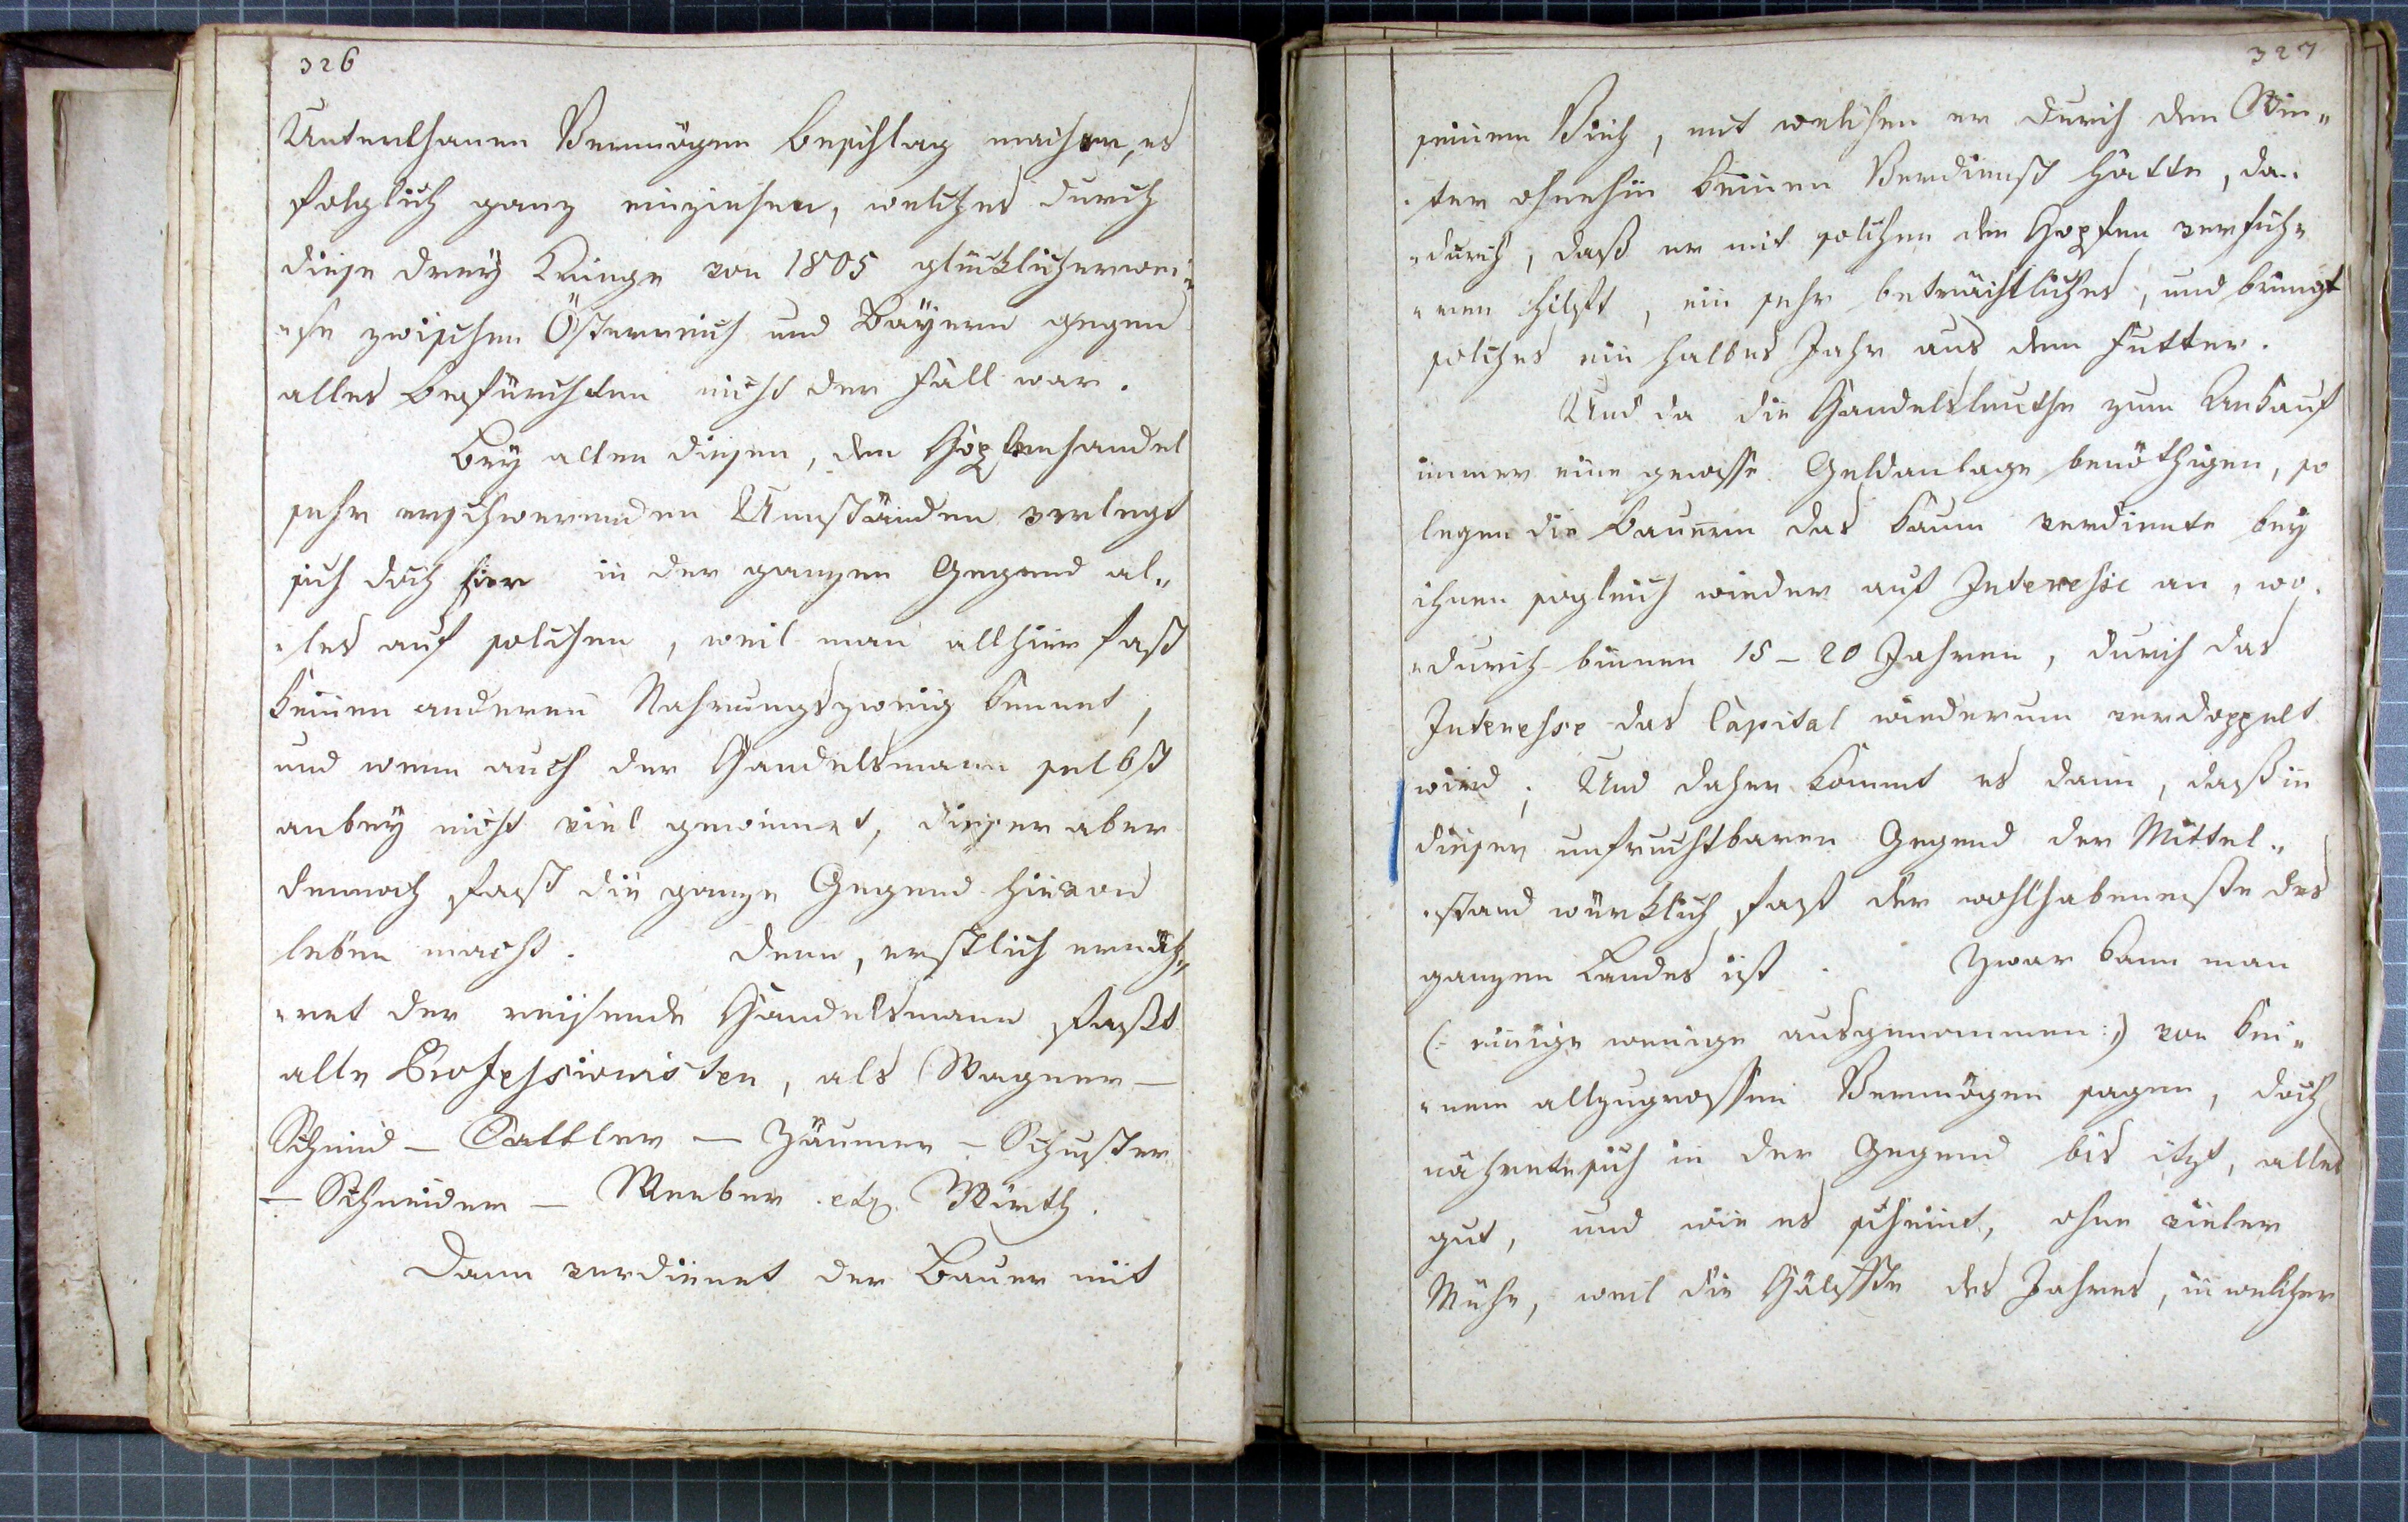 326
Unterthanen Vermögen beschlag machen, es
folglich ganz einziehen, welches durch
diese drey Kriege von 1805 glücklicherwei„
„se zwischen Österreich und Bäyern gegen
alles befürchten nicht der Fall war.
Bey allen diesen, den Hopfenhandel
sehr erschwerenden Umständen verlegt
sich doch hier in der ganzen Gegend al„
„les auf solchen, weil man allhier fast
keinen anderen Nahrungszweig kennet,
und wenn auch der Handelsmann selbst
anbey nicht viel gewinnet, dieser aber
dennoch fast die ganze Gegend hievon
leben macht. Denn, erstlich ernäh„
„ret der reisende Handelsmann fasst
alle Professionisten, als Wagner –
Schmid – Sattler – Zäumer – Schuster
– Schneider – Weeber etz. Wirth.
Dann verdienet der Bauer mit
327
seinem Vieh, mit welchen er durch den Win„
„ter ohnehin keinen Verdienst hätte, da„
„durch, daß er mit solchen den Hopfen verfüh„
„ren hilft, ein sehr beträchtliches, und bringt
solches ein halbes Jahr aus dem Futter.
Und da die Handelsleuthe zum Ankauf
immer eine gewisse Geldanlage benöthigen, so
legen die Bauern das kaum verdiente bey
ihnen sogleich wieder auf Interesse an, wo„
„durch binnen 15 – 20 Jahren, durch das
Interesse das Capital wiederum verdoppelt
wird; Und daher kommt es dann, daß in
dieser unfruchtbaren Gegend der Mittel„
„stand würklich fast der wohlhabeneste des
ganzen Landes ist. Zwar kann man
(: einige wenige ausgenommen :) von kei„
„nem allzugrossen Vermögen sagen, doch
nährete sich in der Gegend bis itzt, alles
gut, und wie es scheint, ohne vieler
Mühe, weil die Hälfte des Jahres, in welcher